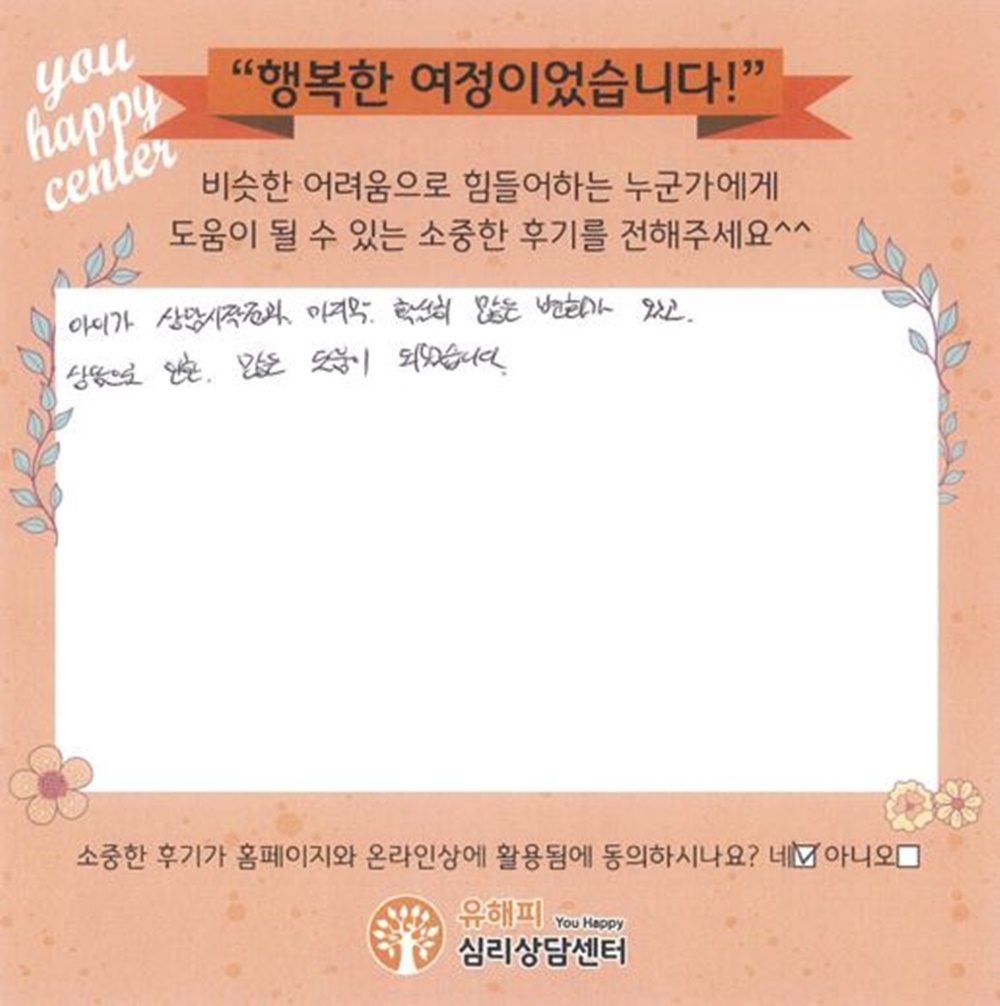 you
happy
center
“행복한 여정이었습니다!”
비슷한 어려움으로 힘들어하는 누군가에게
도움이 될 수 있는 소중한 후기를 전해주세요^^
아이가 상담시작전과. 마지막. 확연히 많은 변화가 있고.
상담으로 인한. 많은 도움이 되었습니다.
소중한 후기가 홈페이지와 온라인상에 활용됨에 동의하시나요? 네☑ 아니오☐
유해피 You Happy
심리상담센터